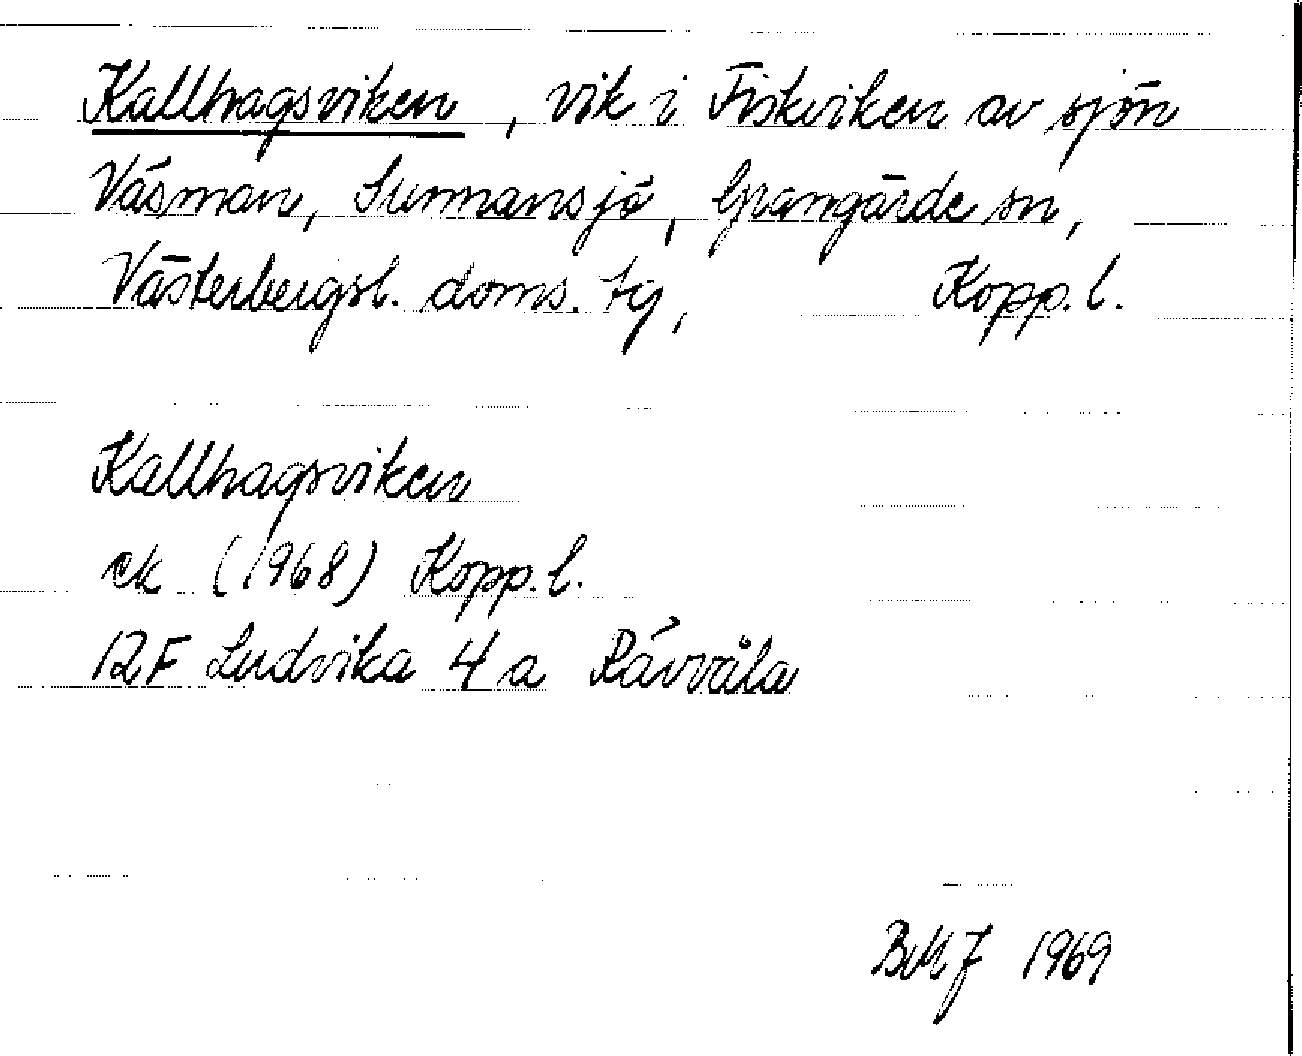 Kallhagsviken, vik i Fiskviken av sjön
Väsman, Sunnansjö, Grangärde sn,
Västerbergsl. doms. tg, Kopp. l.
Kallhagsviken
ek (1968) Kopp. l.
12F Ludvika 4a Rävvåla
BMJ 1969